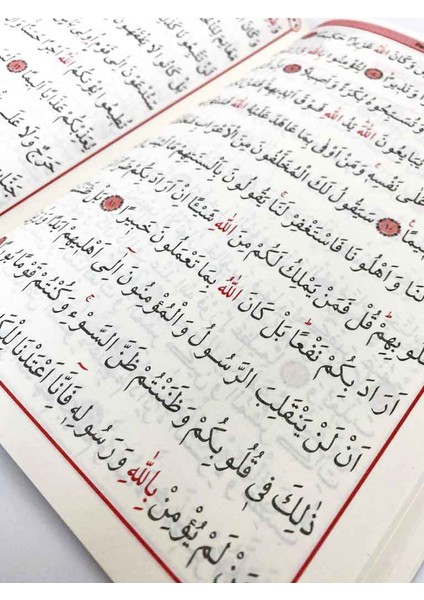 وَكَانَ اللّٰهُ عَزِيزًا
وَنَذِيرًا ﴿٨﴾ لِتُؤْمِنُوا بِاللّٰهِ
وَتُسَبِّحُوهُ بُكْرَةً وَاَصِيلًا
يُبَايِعُونَ اللّٰهَ يَدُ اللّٰهِ فَوْقَ اَيْدِيهِمْ
عَلٰى نَفْسِهِ وَمَنْ اَوْفٰى بِمَا عَاهَدَ عَلَيْهُ اللّٰهَ
ظِيمًا ﴿١٠﴾ سَيَقُولُ لَكَ الْمُخَلَّفُونَ مِنَ الْاَعْرَابِ
لُنَا وَاَهْلُونَا فَاسْتَغْفِرْ لَنَا يَقُولُونَ بِاَلْسِنَتِهِمْ
قُلُوبِهِمْ قُلْ فَمَنْ يَمْلِكُ لَكُمْ مِنَ اللّٰهِ شَيْئًا اِنْ اَرَادَ بِكُمْ
اَرَادَ بِكُمْ نَفْعًا بَلْ كَانَ اللّٰهُ بِمَا تَعْمَلُونَ خَبِيرًا ﴿١١﴾ بَلْ
اَنْ لَنْ يَنْقَلِبَ الرَّسُولُ وَالْمُؤْمِنُونَ اِلٰٓى اَهْلِيهِمْ اَبَدًا
ذٰلِكَ فِي قُلُوبِكُمْ وَظَنَنْتُمْ ظَنَّ السَّوْءِ وَكُنْتُمْ قَوْمًا بُورًا
مَنْ لَمْ يُؤْمِنْ بِاللّٰهِ وَرَسُولِهِ فَاِنَّٓا اَعْتَدْنَا لِلْكَا
كَانُوا لَا يَفْقَهُونَ
سَتُدْعَوْنَ اِلٰى قَوْمٍ
تُطِيعُوا يُؤْتِكُمُ اللّٰهُ
يُعَذِّبْكُمْ عَذَابًا اَلِيمًا
حَرَجٌ وَلَا عَلَى